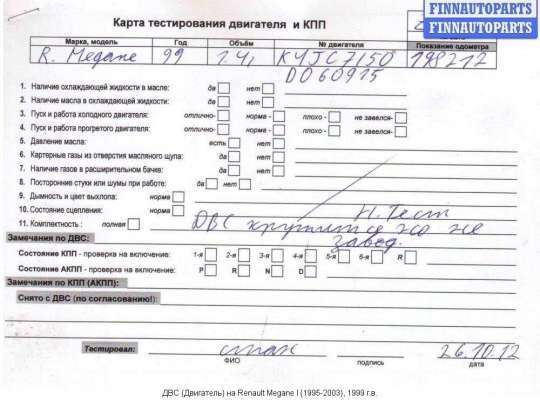 FINNAUTOPARTS
FINNAUTOPARTS
Карта тестирования двигателя и КПП
Марка, модель Год Объём № двигателя Показание одометра
R. Megane 99 1.4i K4JC7150 198212
D060915
1. Наличие охлаждающей жидкости в масле: да нет
2. Наличие масла в охлаждающей жидкости: да нет
3. Пуск и работа холодного двигателя: отлично- норма - плохо - не завелся-
4. Пуск и работа прогретого двигателя: отлично- норма - плохо - не завелся-
5. Давление масла: есть нет
6. Картерные газы из отверстия масляного щупа: да нет
7. Наличие газов в расширительном бачке: да нет
8. Посторонние стуки или шумы при работе: да нет
9. Дымность и цвет выхлопа: норма
10. Состояние сцепления: норма Н.Тест
11. Комплектность: полная ДВС крутится но не
Замечания по ДВС: завед.
Состояние КПП - проверка на включение: 1-я 2-я 3-я 4-я 5-я 6-я R
Состояние АКПП - проверка на включение: P R N D
Замечания по КПП (АКПП):
Снято с ДВС (по согласованию!):
Тестировал: 26.10.12
ФИО подпись дата
ДВС (Двигатель) на Renault Megane I (1995-2003), 1999 г.в.